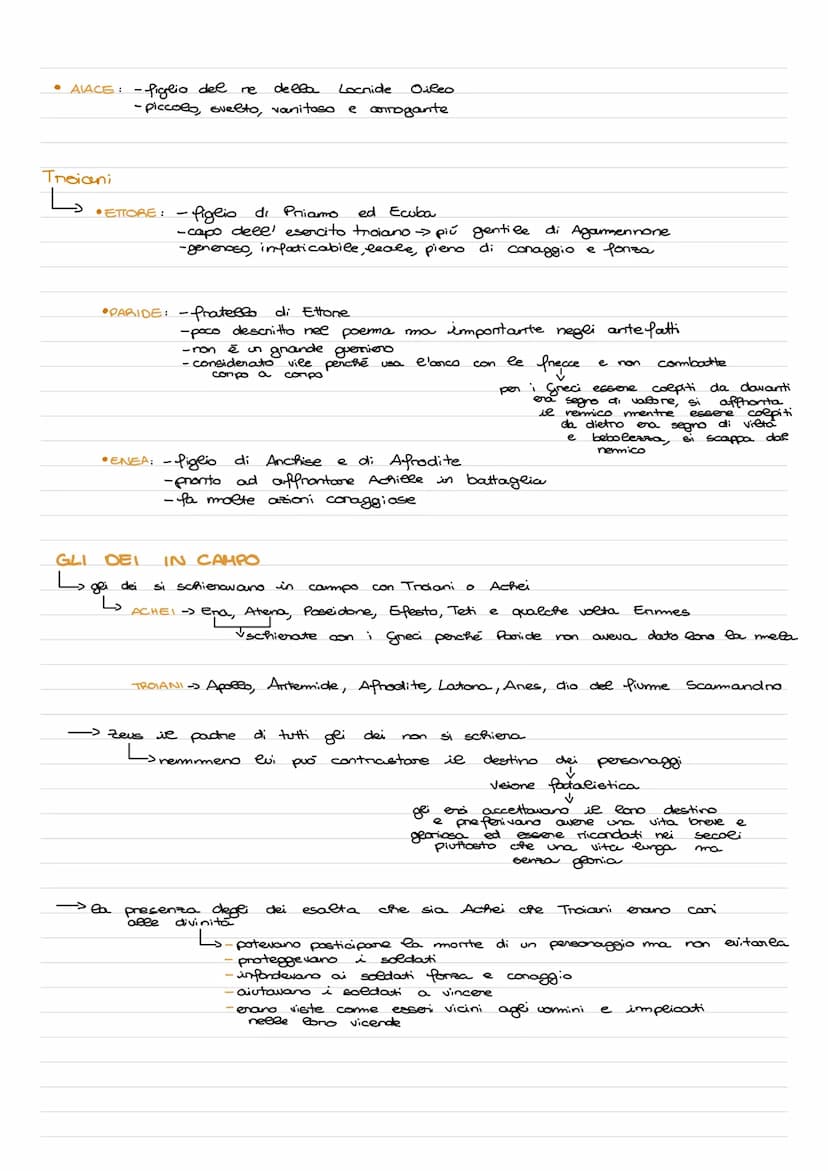 • AIACE: - figlio del re della Locride Oileo
- piccolo, svelto, vanitoso e arrogante
Troiani
• ETTORE: - figlio di Priamo ed Ecuba
- capo dell' esercito troiano → piú gentile di Agamennone
- generoso, infaticabile, leale, pieno di coraggio e forza
• PARIDE: - fratello di Ettore
- poco descritto nel poema ma importante negli antefatti
- non è un grande guerriero
- considerato vile perché usa l'arco con le frecce e non combatte
corpo a corpo
per i Greci essere colpiti da davanti
era segno di valore, si affronta
il nemico mentre essere colpiti
da dietro era segno di viltà
e bebolezza, si scappa dal
nemico
• ENEA: - figlio di Anchise e di Afrodite
- pronto ad affrontare Achille in battaglia
- fa molte azioni coraggiose
GLI DEI IN CAMPO
↳ gli dei si schieravano in campo con Troiani o Achei
↳ ACHEI → Era, Atena, Poseidone, Efesto, Teti e qualche volta Ermes
↓ schierate con i Greci perché Paride non aveva dato loro la mela
TROIANI → Apollo, Artemide, Afrodite, Latona, Ares, dio del fiume Scamandro
→ Zeus il padre di tutti gli dei non si schiera
↳ nemmeno lui puó contrastare il destino dei personaggi
↓
Visione fatalistica
↓
gli eroi accettavano il loro destino
e preferivano avere una vita breve e
gloriosa ed essere ricordati nei secoli
piuttosto che una vita lunga ma
senza gloria
→ la presenza degli dei esalta che sia Achei che Troiani erano cari
alle divinità
↳ - potevano posticipare la morte di un personaggio ma non evitarla
- proteggevano i soldati
- infondevano ai soldati forza e coraggio
- aiutavano i soldati a vincere
- erano viste come esseri vicini agli uomini e implicati
nelle loro vicende